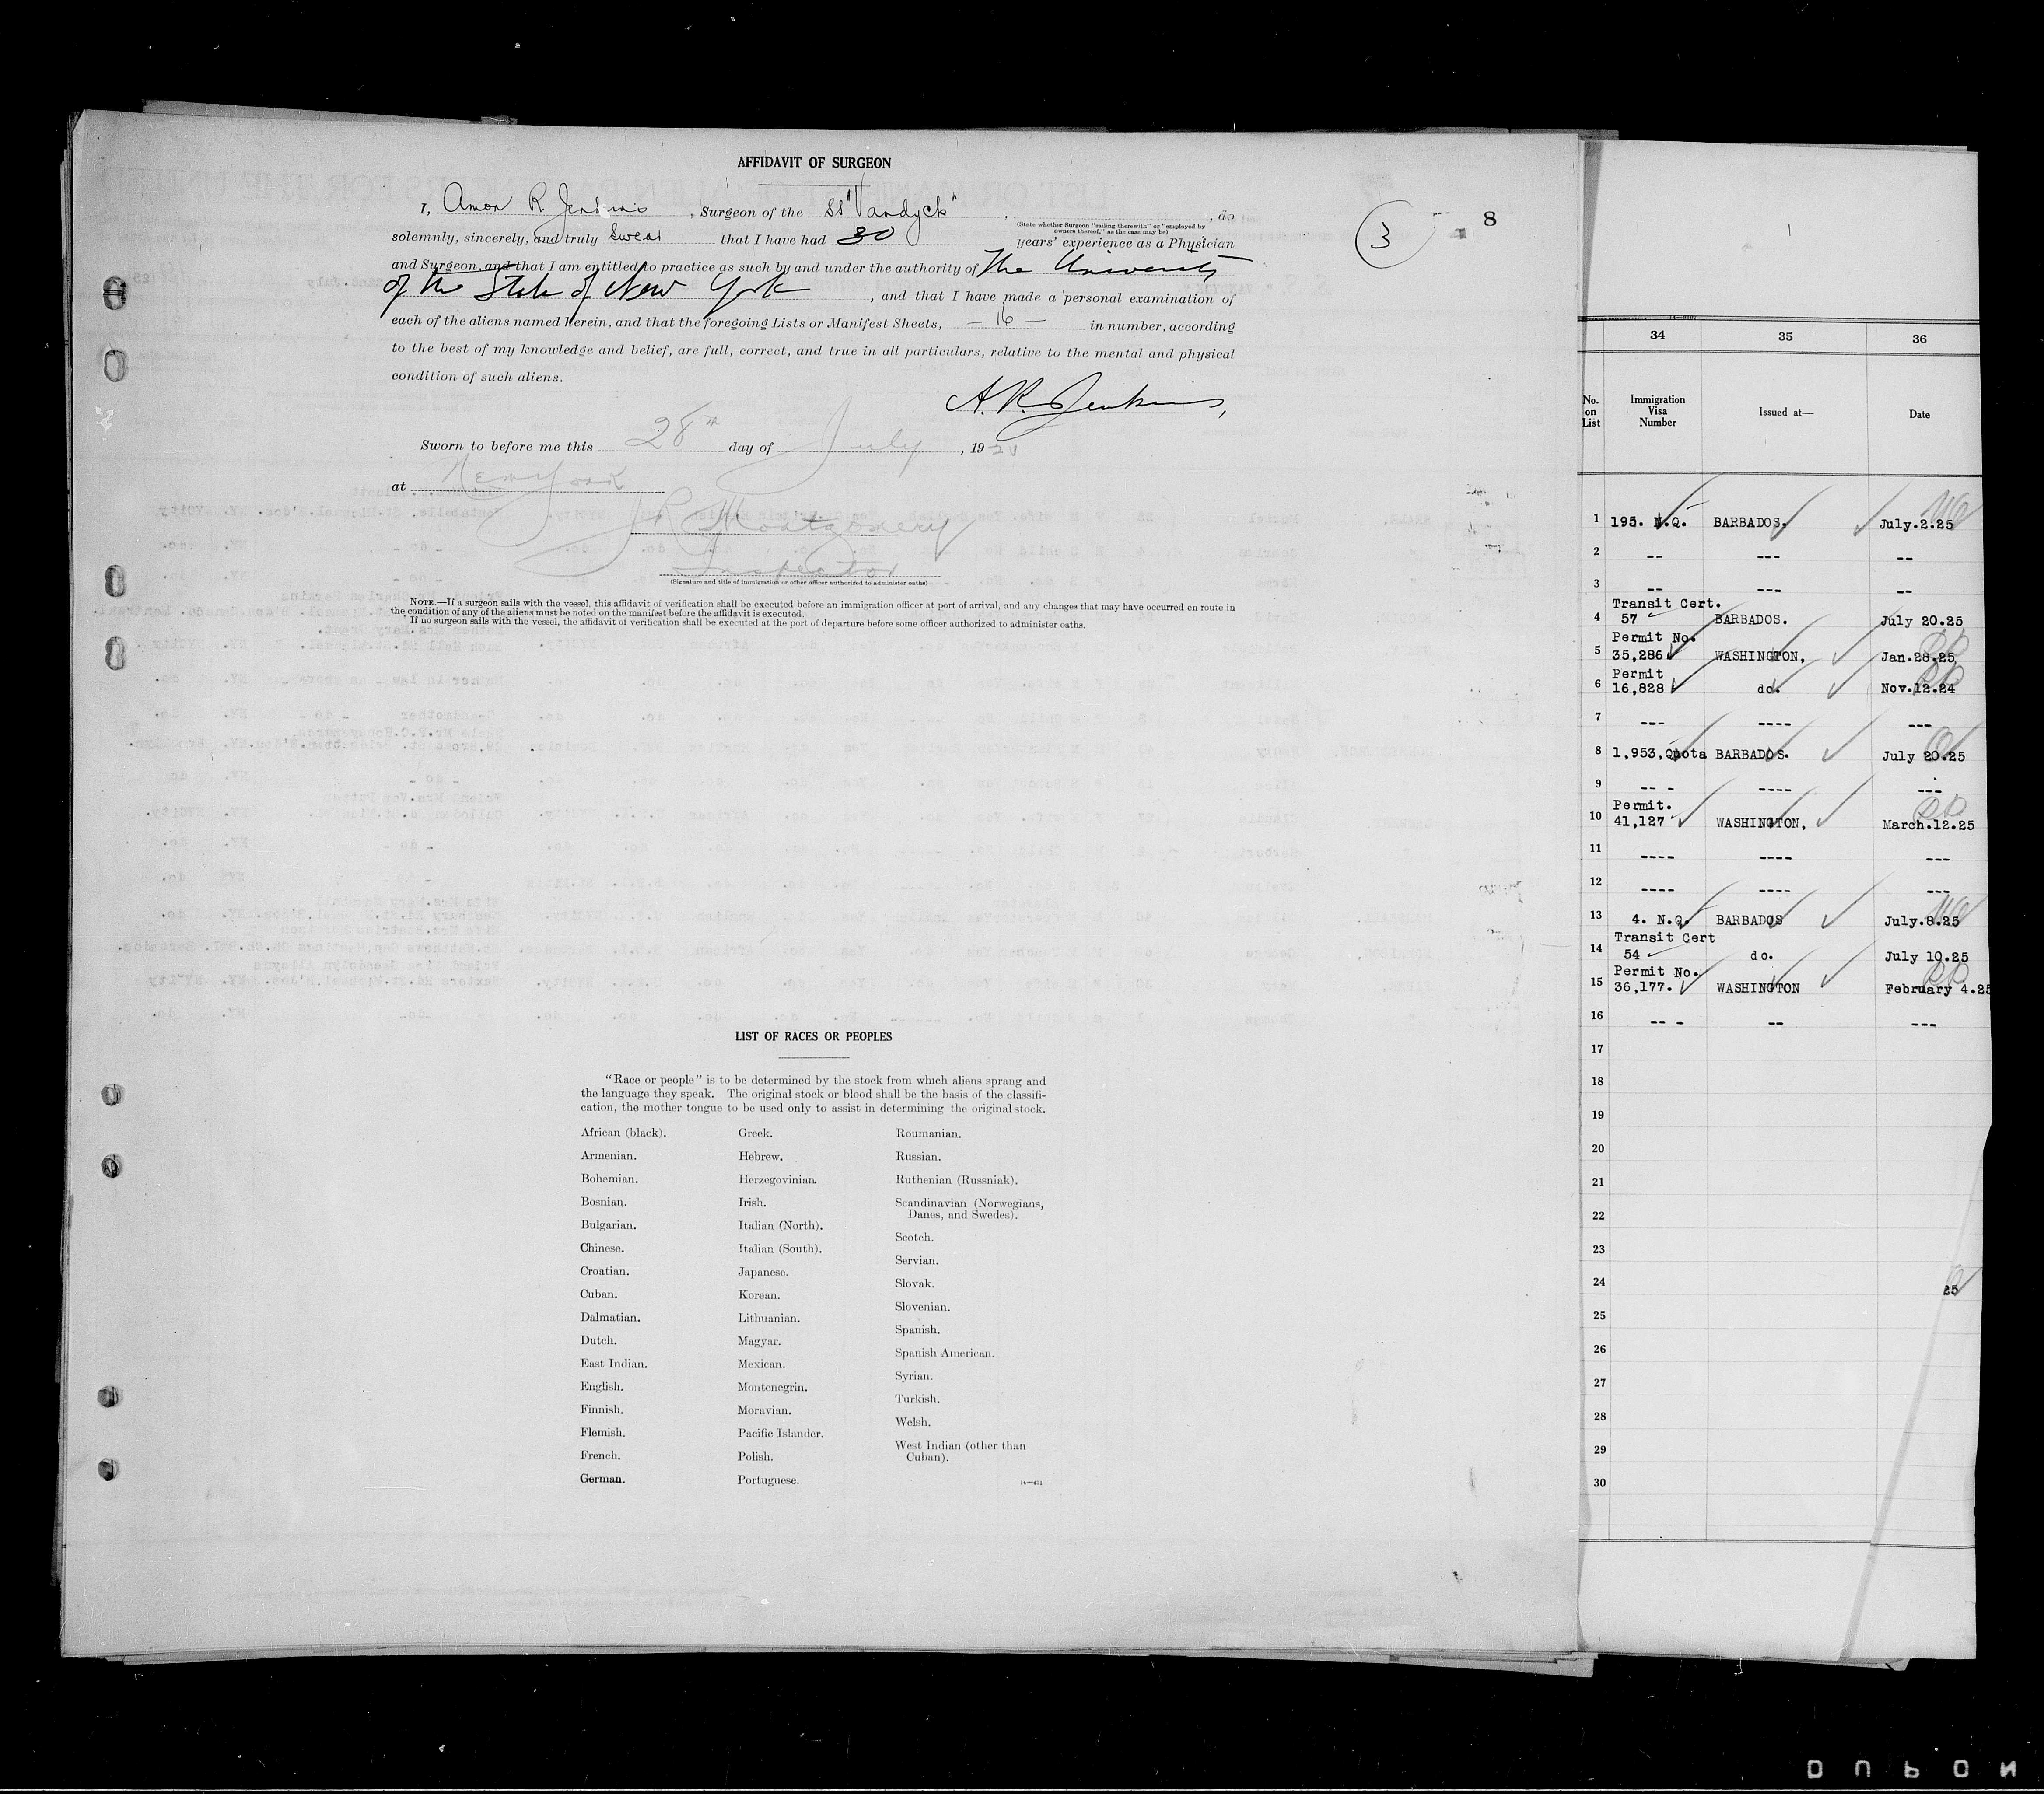 AFFIDAVIT OF SURGEON
I, Amon R. Jenkins, Surgeon of the SS "Vandyck", do
(State whether Surgeon "sailing therewith" or "employed by owners thereof," as the case may be)
solemnly, sincerely, and truly swear that I have had 30 years' experience as a Physician
and Surgeon, and that I am entitled to practice as such by and under the authority of The University
of the State of New York, and that I have made a personal examination of
each of the aliens named herein, and that the foregoing Lists or Manifest Sheets, — 16 — in number, according
to the best of my knowledge and belief, are full, correct, and true in all particulars, relative to the mental and physical
condition of such aliens.
A. R. Jenkins,
Sworn to before me this 28th day of July, 19
at New York
Montgomery
Inspector
(Signature and title of immigration or other officer authorized to administer oaths)
NOTE.—If a surgeon sails with the vessel, this affidavit of verification shall be executed before an immigration officer at port of arrival, and any changes that may have occurred en route in
the condition of any of the aliens must be noted on the manifest before the affidavit is executed.
If no surgeon sails with the vessel, the affidavit of verification shall be executed at the port of departure before some officer authorized to administer oaths.
3
8
LIST OF RACES OR PEOPLES
"Race or people" is to be determined by the stock from which aliens sprang and
the language they speak. The original stock or blood shall be the basis of the classifi-
cation, the mother tongue to be used only to assist in determining the original stock.
African (black).
Armenian.
Bohemian.
Bosnian.
Bulgarian.
Chinese.
Croatian.
Cuban.
Dalmatian.
Dutch.
East Indian.
English.
Finnish.
Flemish.
French.
German.
Greek.
Hebrew.
Herzegovinian.
Irish.
Italian (North).
Italian (South).
Japanese.
Korean.
Lithuanian.
Magyar.
Mexican.
Montenegrin.
Moravian.
Pacific Islander.
Polish.
Portuguese.
Roumanian.
Russian.
Ruthenian (Russniak).
Scandinavian (Norwegians,
Danes, and Swedes).
Scotch.
Servian.
Slovak.
Slovenian.
Spanish.
Spanish American.
Syrian.
Turkish.
Welsh.
West Indian (other than
Cuban).
34 35 36
No. on List Immigration Visa Number Issued at— Date
1 195. N.Q. BARBADOS. July.2.25
2 -- --- --
3 -- --- --
Transit Cert.
4 57 BARBADOS. July 20.25
Permit No.
5 35,286 WASHINGTON, Jan.28,25
Permit
6 16,828 do. Nov.12.24
7 --- ---- ---
8 1,953,Quota BARBADOS. July 20.25
9 -- - ---- ---
Permit.
10 41,127 WASHINGTON, March.12.25
11 ---- ---- ---
12 ---- ---- ---
13 4. N.Q. BARBADOS July.8.25
Transit Cert
14 54 do. July 10.25
Permit No.
15 36,177. WASHINGTON February 4.25
16 -- - -- ---
17
18
19
20
21
22
23
24 25
25
26
27
28
29
30